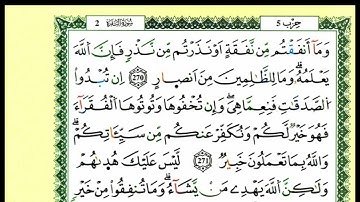 حزب 5
سورة البقرة 2
وَمَآ أَنفَقْتُم مِّن نَّفَقَةٍ أَوْ نَذَرْتُم مِّن نَّذْرٍ فَإِنَّ ٱللَّهَ
يَعْلَمُهُۥ ۗ وَمَا لِلظَّٰلِمِينَ مِنْ أَنصَارٍ 270 إِن تُبْدُوا۟
ٱلصَّدَقَٰتِ فَنِعِمَّا هِىَ ۖ وَإِن تُخْفُوهَا وَتُؤْتُوهَا ٱلْفُقَرَآءَ
فَهُوَ خَيْرٌ لَّكُمْ وَنُكَفِّرْ عَنكُم مِّن سَيِّـَٔاتِكُمْ ۗ
وَٱللَّهُ بِمَا تَعْمَلُونَ خَبِيرٌ 271 لَّيْسَ عَلَيْكَ هُدَىٰهُمْ
وَلَٰكِنَّ ٱللَّهَ يَهْدِى مَن يَشَآءُ ۗ وَمَا تُنفِقُوا۟ مِنْ خَيْرٍ